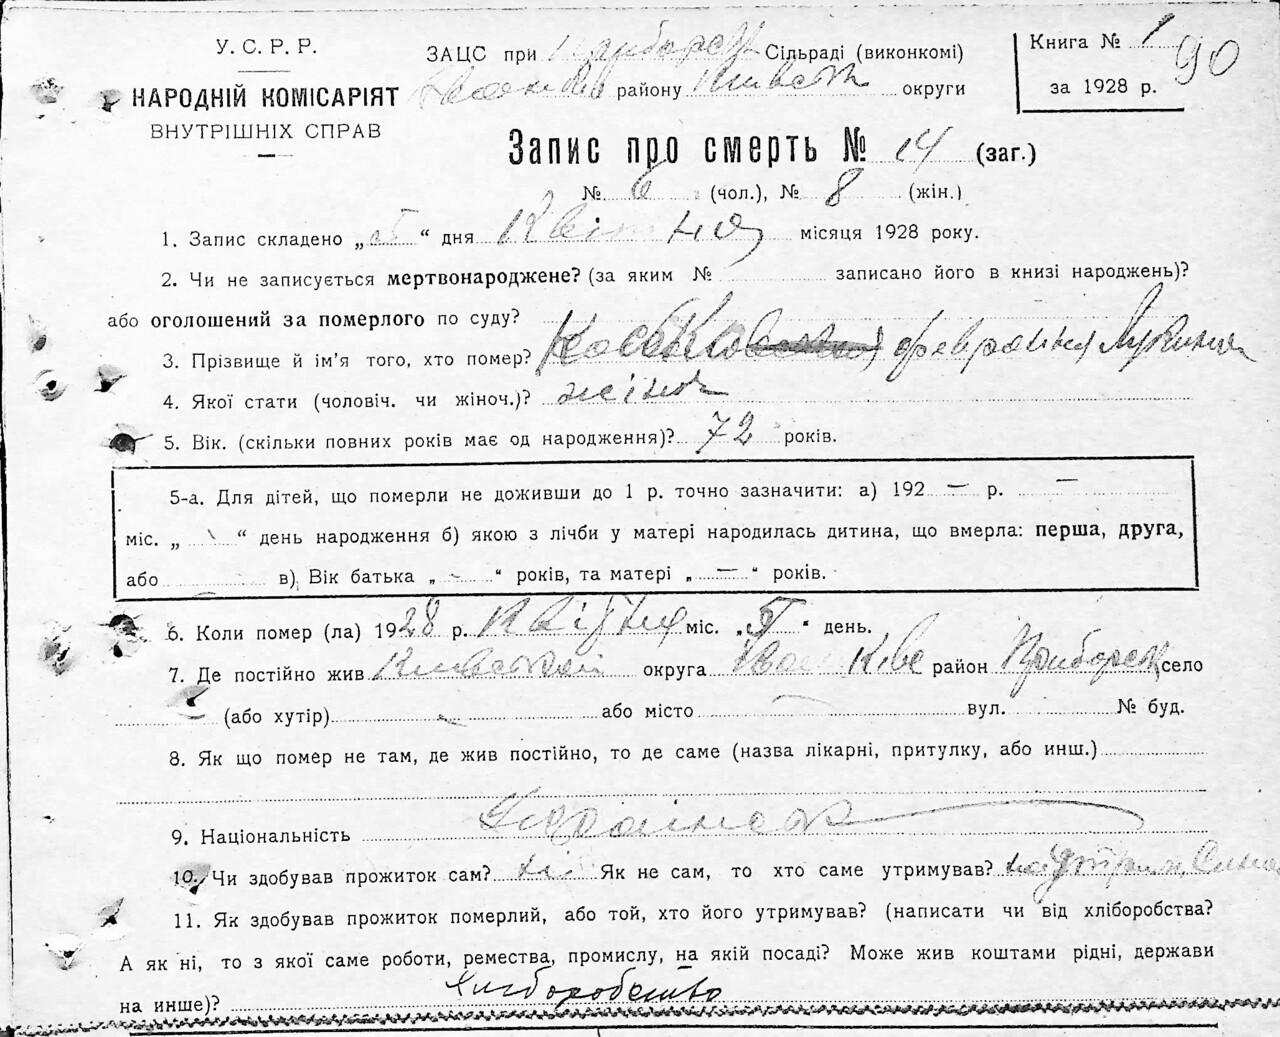 У. С. Р. Р.
НАРОДНІЙ КОМІСАРІЯТ
ВНУТРІШНІХ СПРАВ
ЗАЦС при Сільраді (виконкомі)
району округи
Книга № 1
за 1928 р.
90
Запис про смерть № 14 (заг.)
№ 6 (чол.), № 8 (жін.)
1. Запис складено „ “ дня Квітня місяця 1928 року.
2. Чи не записується мертвонароджене? (за яким № записано його в книзі народжень)?
або оголошений за померлого по суду?
3. Прізвище й ім’я того, хто помер?
4. Якої стати (чоловіч. чи жіноч.)?
5. Вік. (скільки повних років має од народження)? 72 років.
5-а. Для дітей, що померли не доживши до 1 р. точно зазначити: а) 192 — р. —
міс. „ “ день народження б) якою з лічби у матері народилась дитина, що вмерла: перша, друга,
або в) Вік батька „ - “ років, та матері „ — “ років.
6. Коли помер (ла) 1928 р. Квітня міс. „ “ день.
7. Де постійно жив округа район село
(або хутір) або місто вул. № буд.
8. Як що помер не там, де жив постійно, то де саме (назва лікарні, притулку, або инш.)
9. Національність
10. Чи здобував прожиток сам? ні Як не сам, то хто саме утримував?
11. Як здобував прожиток померлий, або той, хто його утримував? (написати чи від хліборобства?
А як ні, то з якої саме роботи, ремества, промислу, на якій посаді? Може жив коштами рідні, держави
на инше)? Хліборобство